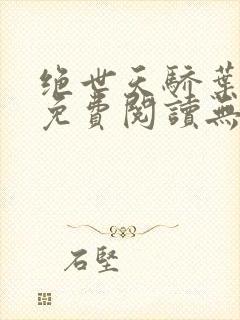 绝世天骄叶
免費閱讀無
石堅